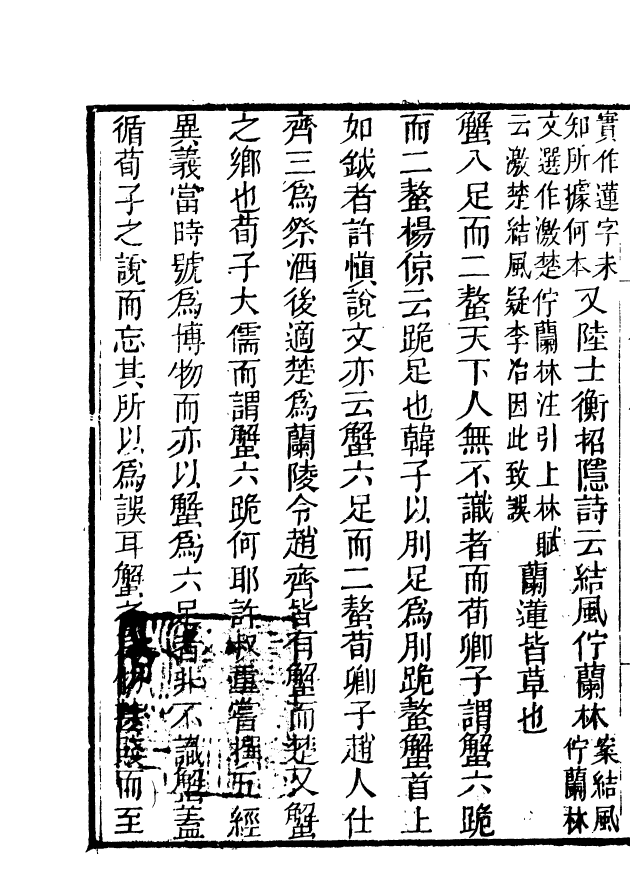 實作蓮字未知所據何本又陸士衡招隱詩云結風佇蘭林案結風佇蘭林
文選作激楚佇蘭林注引上林賦云激楚結風疑李冶因此致誤蘭蓮皆草也
蟹八足而二螯天下人無不識者而荀卿子謂蟹六跪
而二螯楊倞云跪足也韓子以刖足爲刖跪螯蟹首上
如鉞者許愼說文亦云蟹六足而二螯荀卿子趙人仕
齊三爲祭酒後適楚爲蘭陵令趙齊皆有蟹而楚又蟹
之鄕也荀子大儒而謂蟹六跪何耶許叔重嘗撰五經
異義當時號爲博物而亦以蟹爲六足者非不識蟹蓋
循荀子之說而忘其所以爲誤耳蟹之爲物賤而至